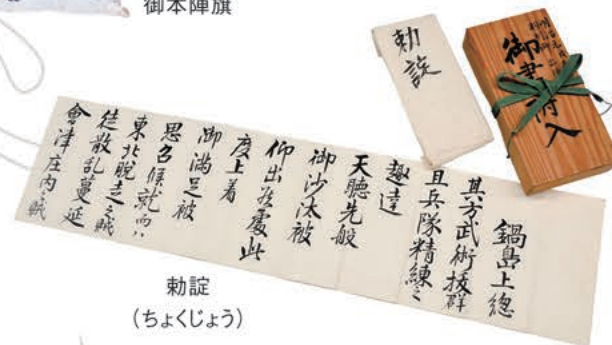 御本陣旗
勅諚
御書附入
鍋島上総
其方武術抜群
且兵隊精練之
趣達
天聴先般
御沙汰被
仰出候處此
度上着
御満足被
思召候就而ハ
東北脱走之賊
徒散乱蔓延
會津庄内之賊
勅諚
(ちょくじょう)